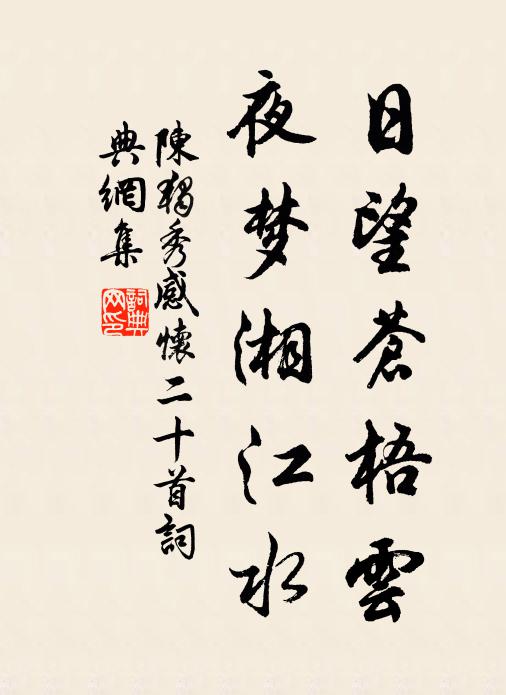 日望蒼梧雲
夜梦湘江水
陳獨秀感懷二十首詞
典網集
詞典網印